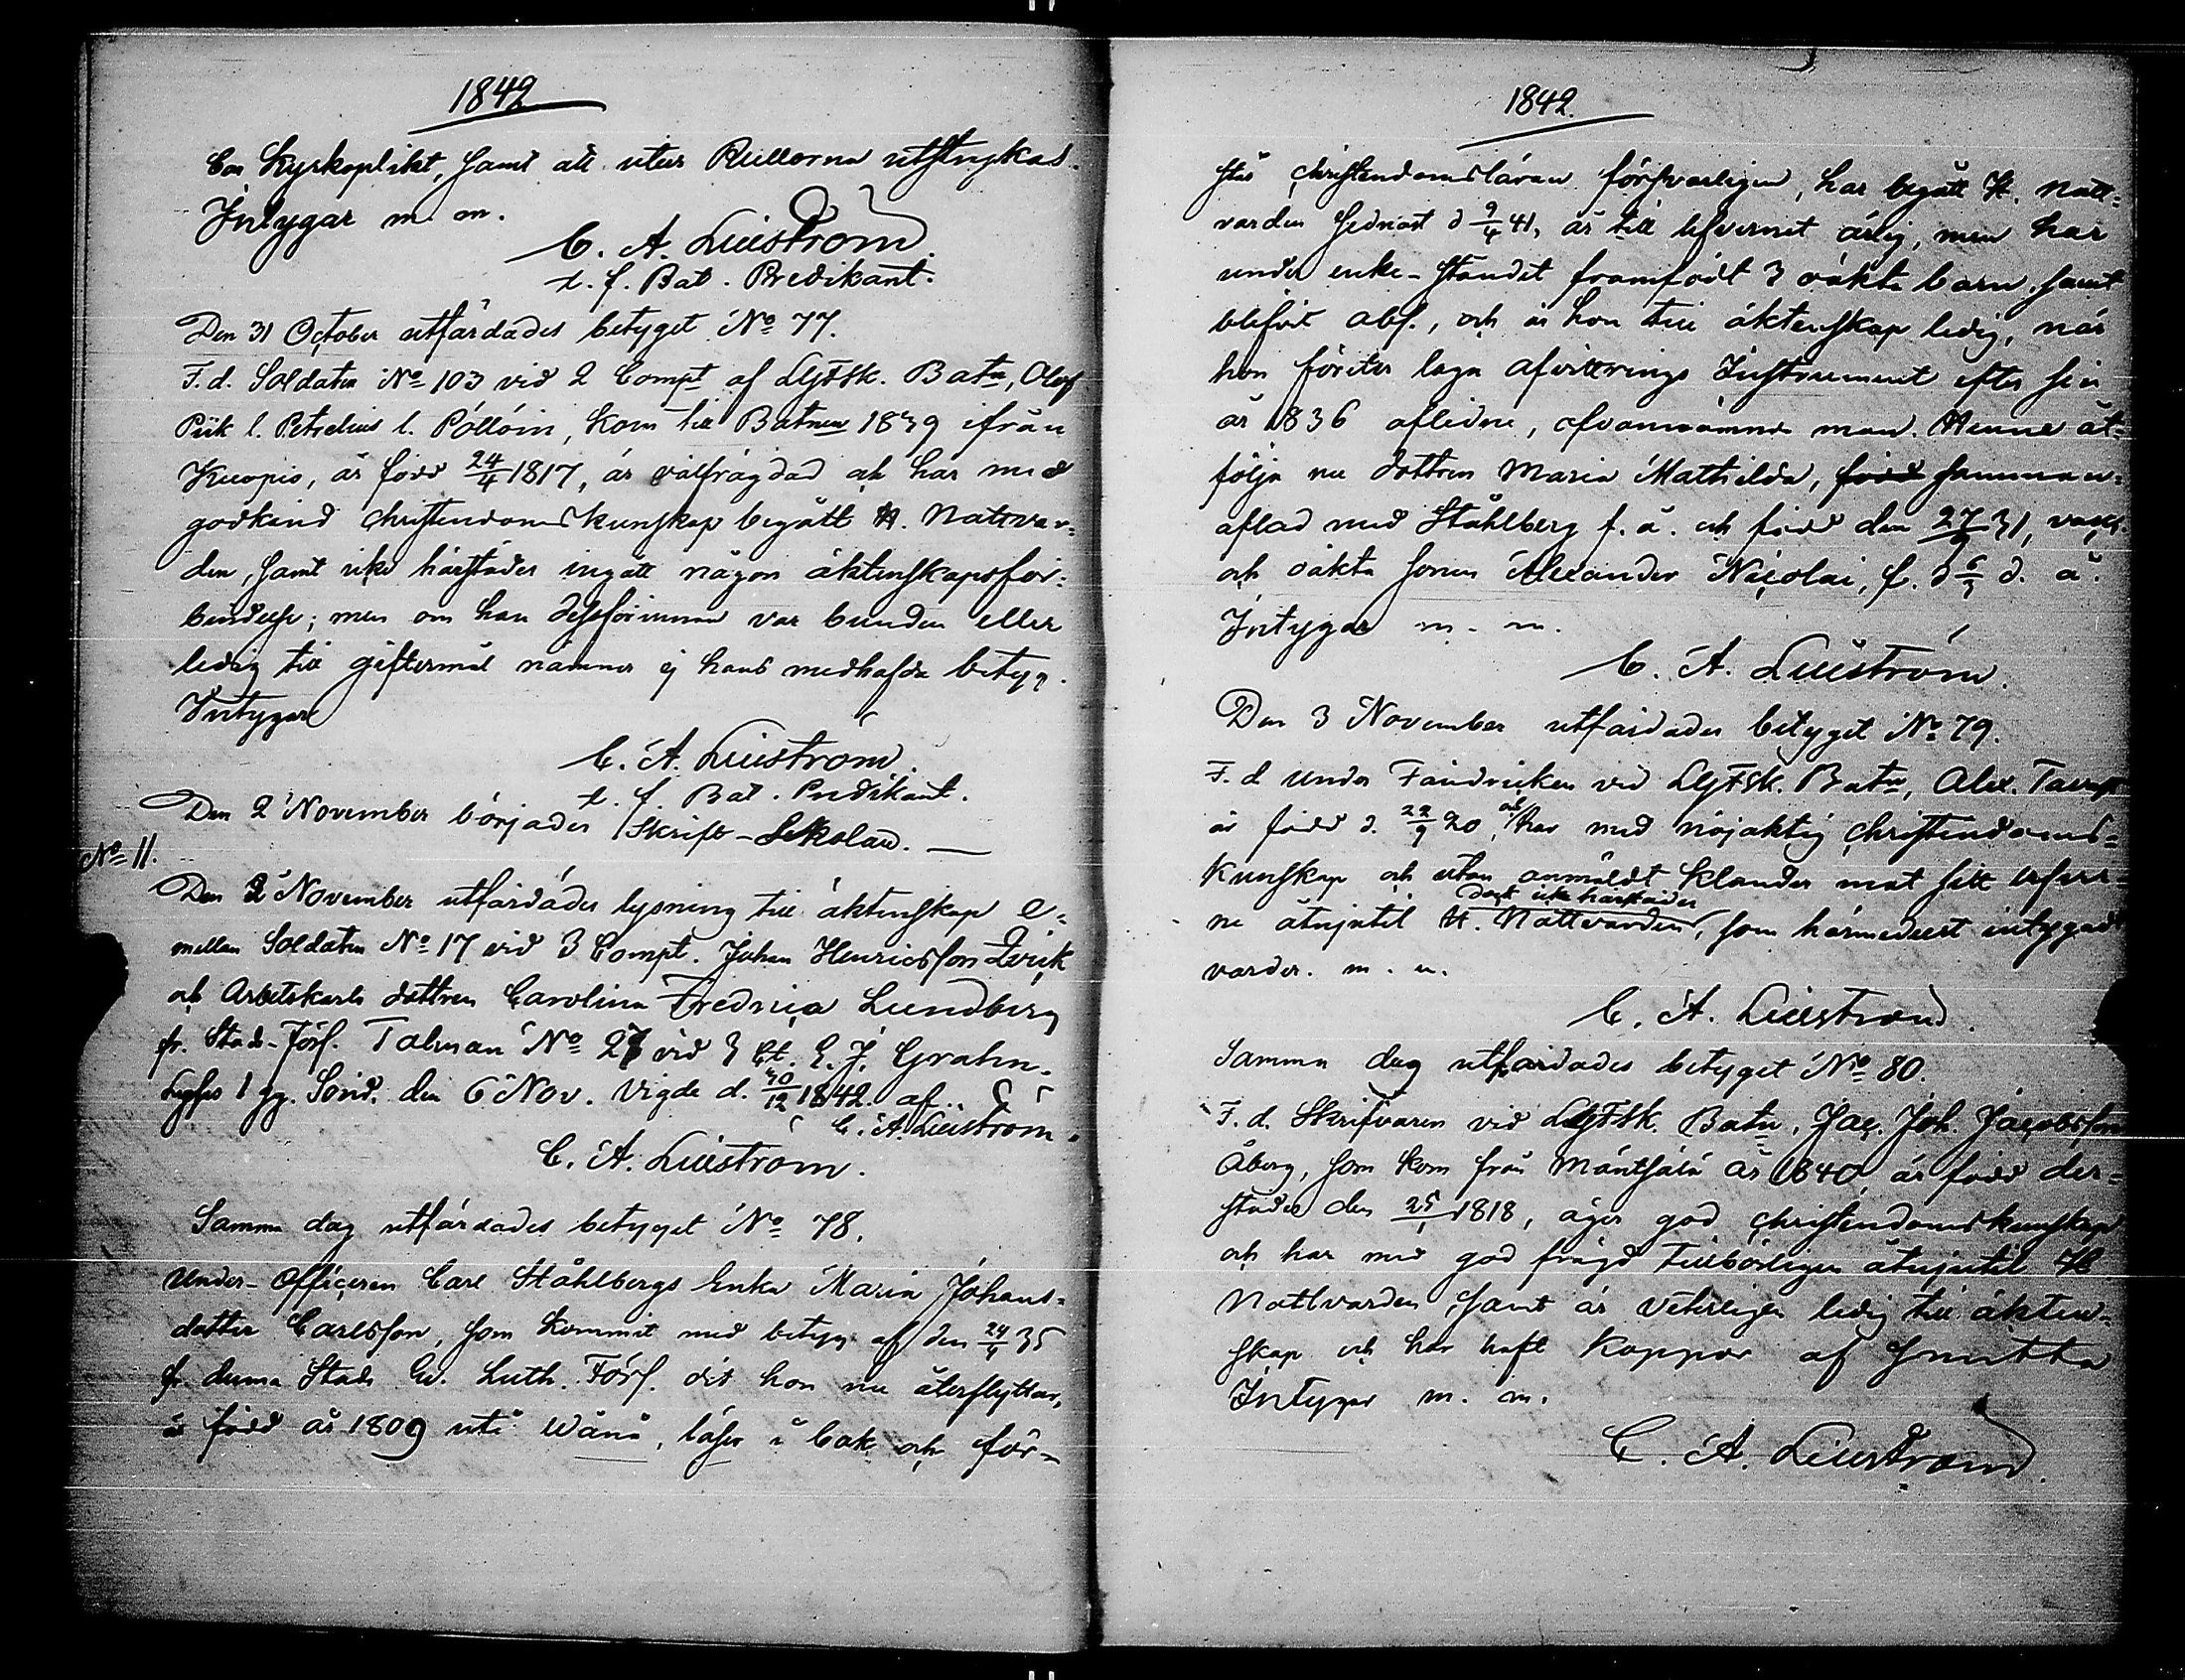 1842
Kyrkoplikt, samt att utur Rullorna utstrykas.
Intygar m. m.
C. A. Liliström.
t. f. Bat. Predikant.
Den 31 October utfärdades betyget No 77.
F. d. Soldaten No 103 vid 2 Compt af Batn, Olof
Piik l. Petrelius l. Pöllöin, kom till Batnen 1839 ifrån
Kuopio, är född 24/4 1817, är välfrägdad och har med
godkänd christendomskunskap begått H. Nattvar-
den, samt icke härstädes ingått någon äktenskapsför-
bindelse; men om han dessförinnan var bunden eller
ledig till giftermål nämner ej hans medhafda betyg.
Intygar
C. A. Liliström.
t. f. Bat. Predikant.
Den 2 November börjades Skrift-Skolan.
No 11.
Den 2 November utfärdades lysning till äktenskap e-
mellan Soldaten No 17 vid 3 Compt. Johan Henricsson Qvick
och Arbetskarls dottren Carolina Fredrica Lundberg
fr. Stads-Förs. Talman No 27 vid 3 Ct. E. J. Grahn.
Lystes 1 gg. Sönd. den 6 Nov. Vigde d. 12 1842 af
C. A. Liliström.
C. A. Liliström.
Samma dag utfärdades betyget No 78.
Under-Officeren Carl Ståhlbergs Enka Maria Johans-
dotter Carlsson, som kommit med betyg af den 24/4 35
fr. denna Stads Ev. Luth. Förs. dit hon nu återflyttar,
är född år 1809 uti Wånå, läser i bok och för-
1842.
står christendomsläran försvarligen, har begått H. Natt-
varden sednast d 9/4 41, är till lefvernet ärlig, men har
under enke-ståndet framfödt 3 oäkta barn, samt
blifvit abs., och är hon till äktenskap ledig, när
hon företer laga afvittrings Instrument efter sin
år 1836 aflidne, ofvannämnde man. Henne åt-
följa nu dottren Maria Mathilda, född samman-
aflad med Ståhlberg f. ä. och född den 27 31, vacc.
och oäkta sonen Alexander Nicolai, f. d 6 d. å.
Intygar m. m.
C. A. Liliström.
Den 3 November utfärdades betyget No 79.
F. d Under Fändricken vid Batn, Alex.
är född d. 22/9 20, och har med nöjaktig christendoms-
kunskap och utan anmäldt klander mot sitt lefver-
dock icke härstädes
ne åtnjutit H. Nattvarden, som härmedelst intygadt
varder. m. m.
C. A. Liliström.
Samma dag utfärdades betyget No 80.
F. d. Skrifvaren vid Batn, Jac. Joh. Jacobsson
Åberg, som kom från Mäntsälä år 1840, är född der-
städes den 25 1818, äger god christendomskunskap
och har med god frägd tillbörligen åtnjutit H.
Nattvarden, samt är veterligen ledig till äkten-
skap och har haft koppor af smitta
Intygar m. m.
C. A. Liliström.